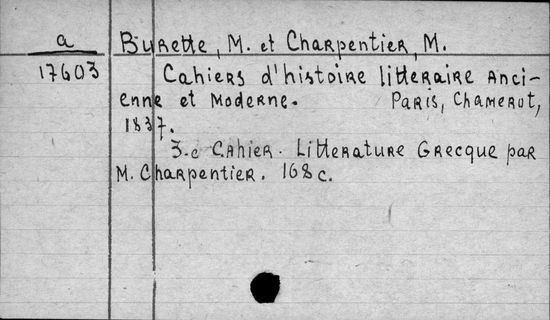 a
Burette, M. et Charpentier, M.
17603
Cahiers d'histoire litteraire anci-
enne et moderne. Paris, Chamerot,
1837.
3.e Cahier. Litterature Grecque par
M. Charpentier. 168 c.